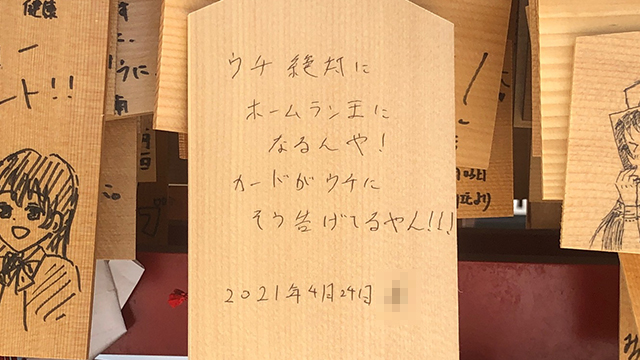 ウチ絶対に
ホームラン王に
なるんや!
カードがウチに
そう告げてるやん!!!
2021年4月24日
健康
ート!!
うに